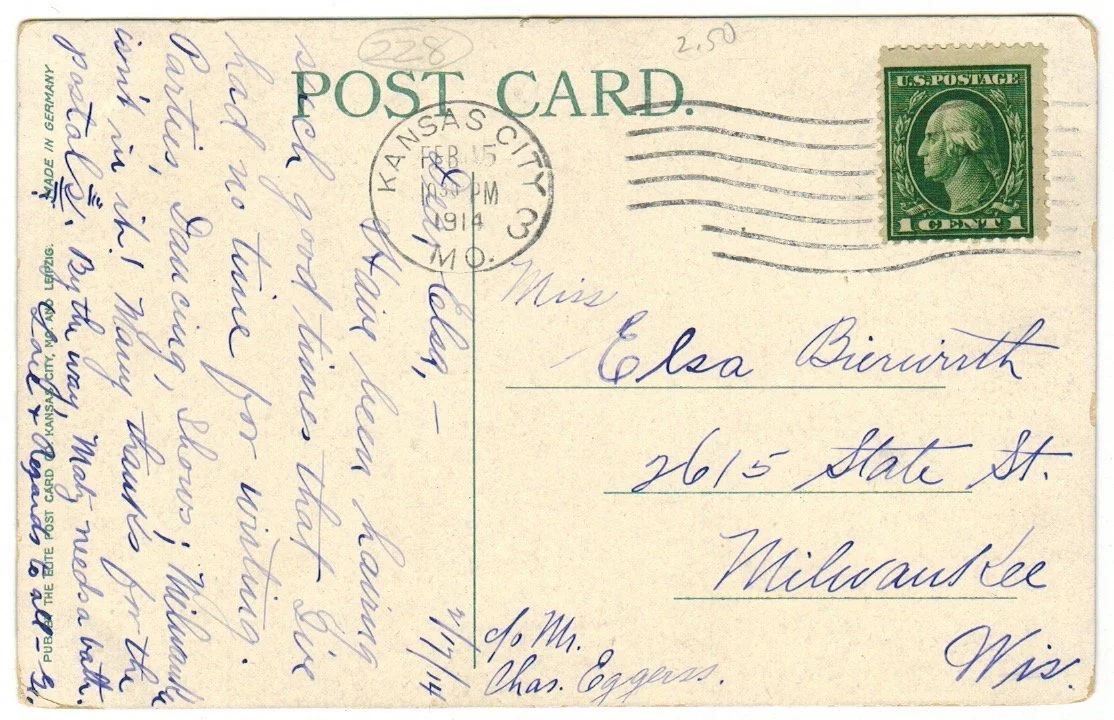 228
2.50
POST CARD.
KANSAS CITY 3
FEB 15
1030 PM
1914
MO.
U.S. POSTAGE
1 CENT 1
Miss
Elsa Bierwirth
2615 State St.
Milwaukee
Wis.
c/o Mr.
Chas. Eggerss.
2/17/14
Dear Elsa, —
Have been having
such good times that I've
had no time for writing.
Parties, Dancing, Shows; Milwaukee
isn't in it! Many thanks for the
postals! By the way, needs a bath.
Love & Regards to all —
MADE IN GERMANY
PUB. BY THE ELITE POST CARD CO KANSAS CITY, MO. AND LEIPZIG.